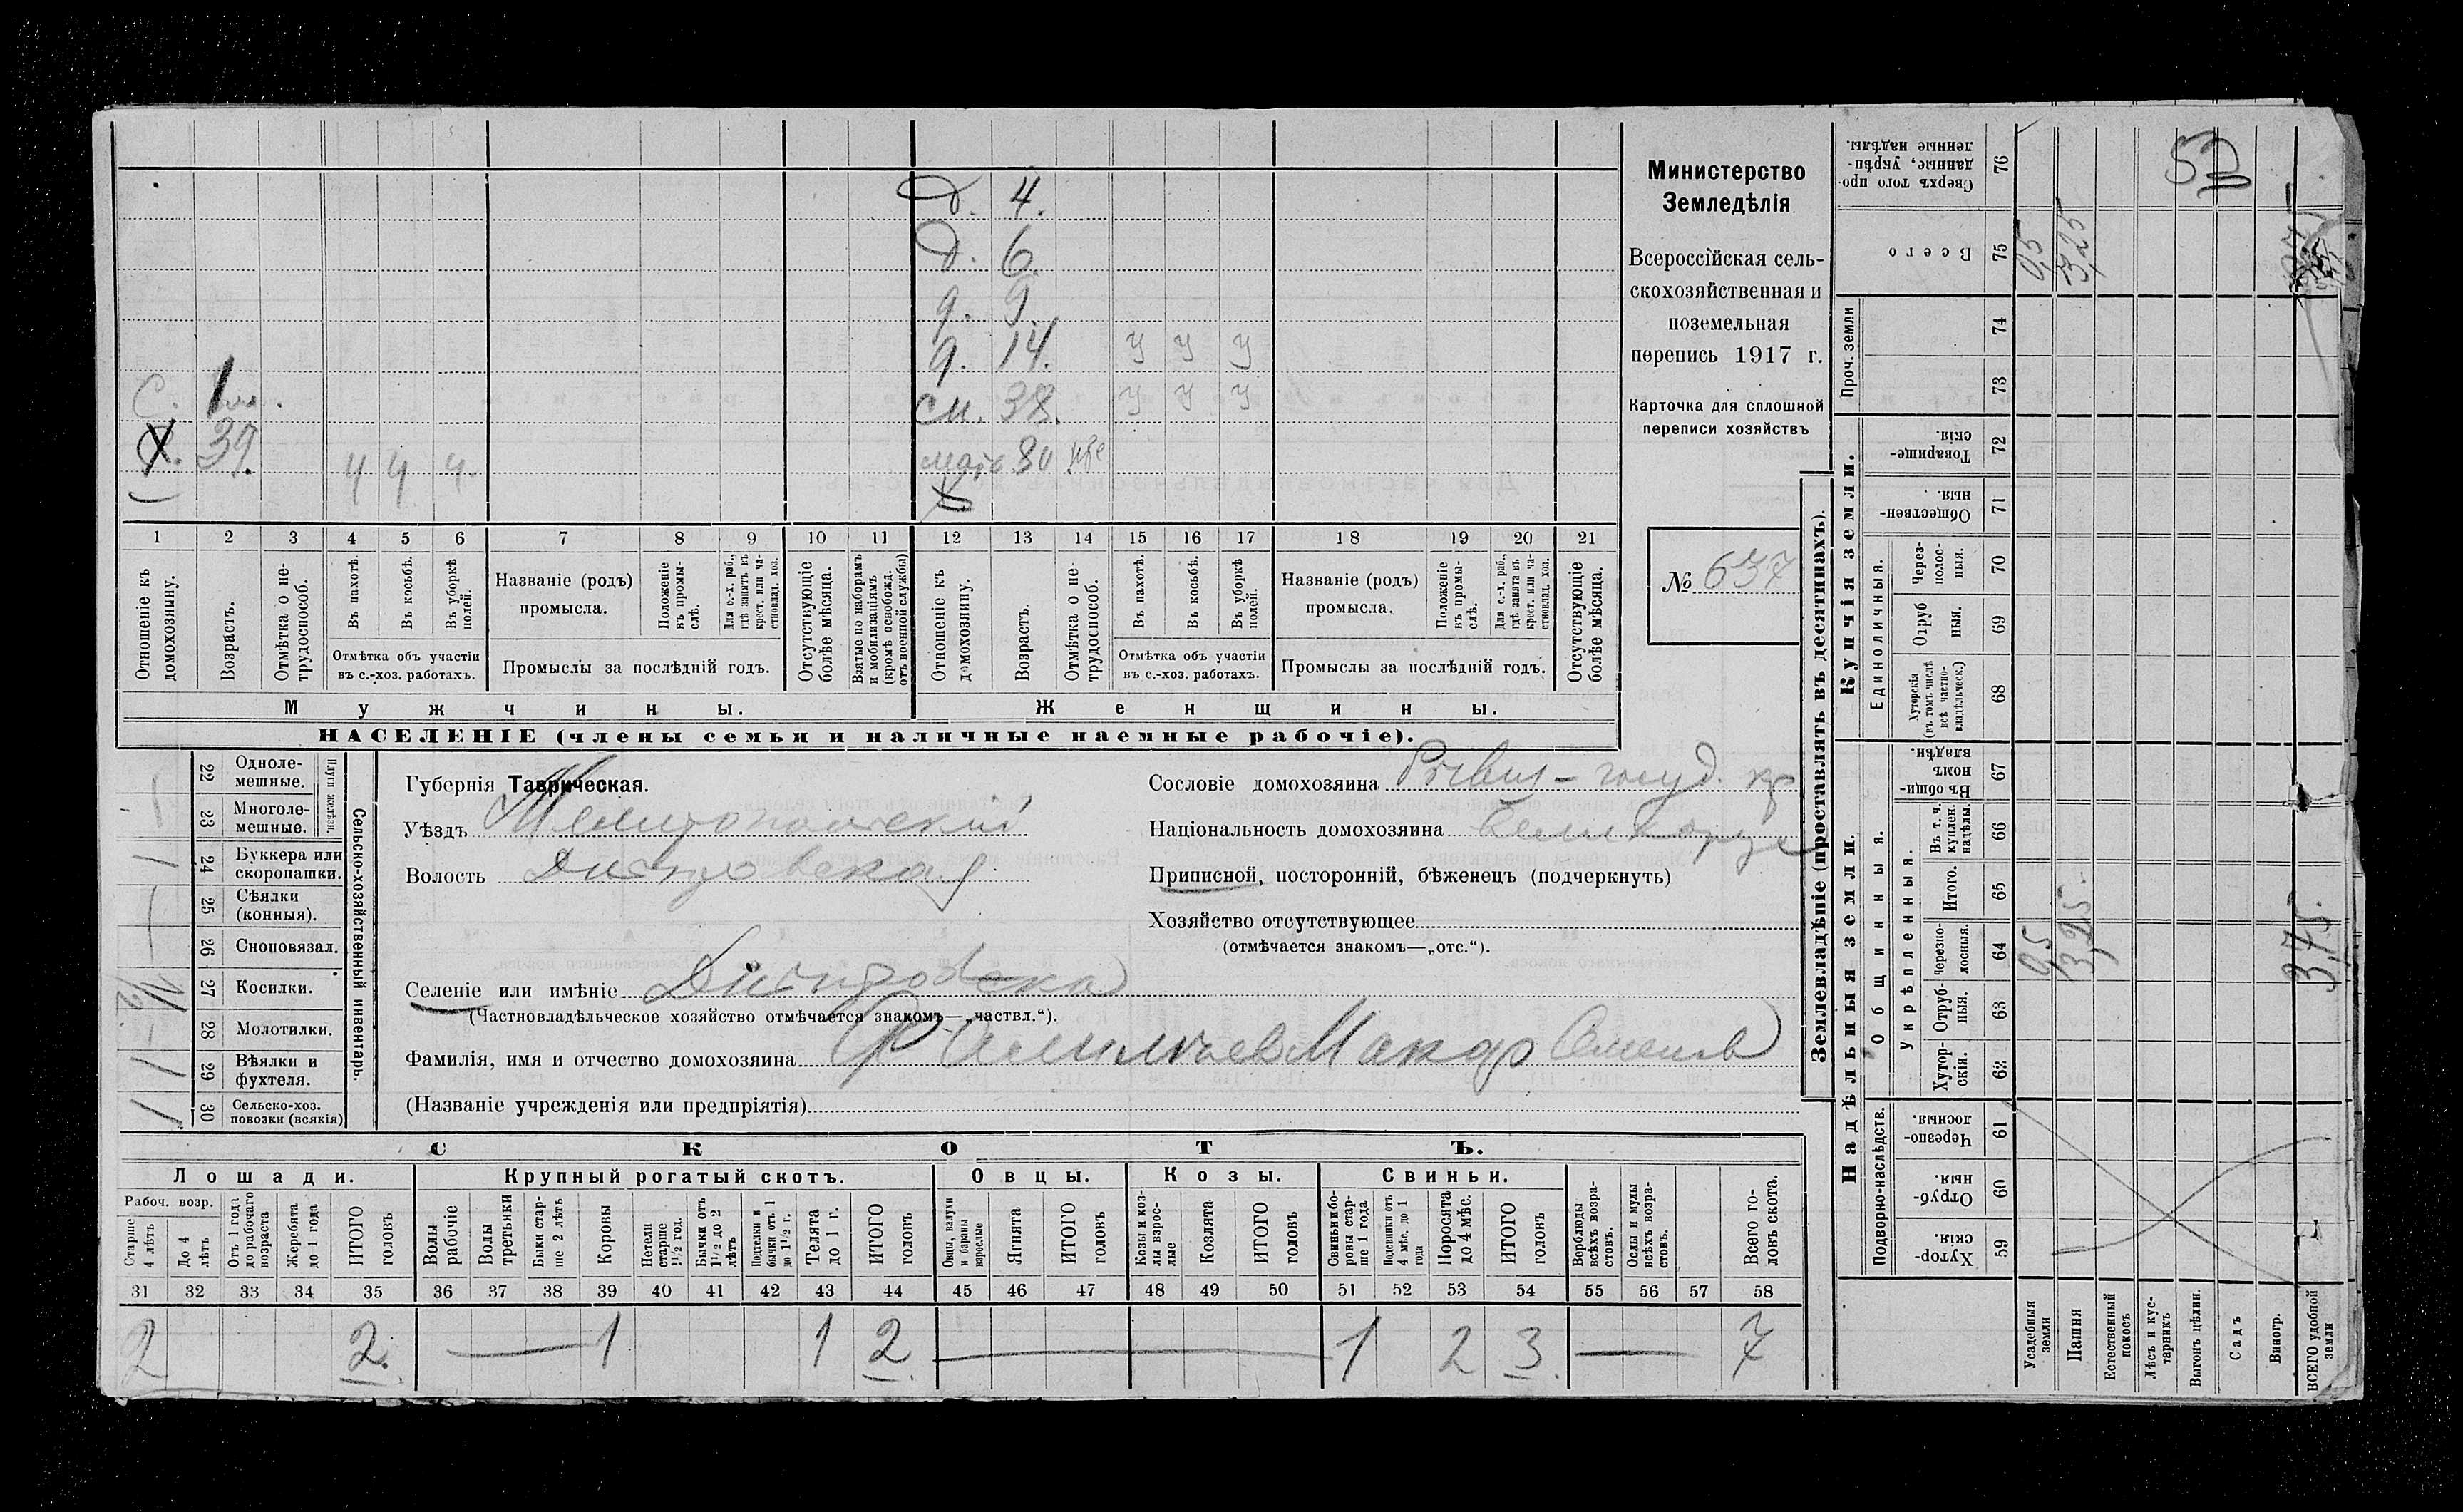 Министерство
Земледѣлія
Всероссійская сель-
скохозяйственная и
поземельная
перепись 1917 г.
Карточка для сплошной
переписи хозяйствъ
№ 637
д. 4.
д. 6.
д. 9.
д. 14. у у у
С. 1
см. 38. у у у
Х. 39. ч ч ч.
мать 80
1 2 3 4 5 6 7 8 9 10 11 12 13 14 15 16 17 18 19 20 21
Отношеніе къ домохозяину.
Возрастъ.
Отмѣтка о не-трудоспособ.
Въ пахотѣ.
Въ косьбѣ.
Въ уборкѣ полей.
Отмѣтка объ участіи
въ с.-хоз. работахъ.
Названіе (родъ)
промысла.
Положеніе въ промы-слѣ.
Для с.-х. раб., гдѣ занятъ въ крест. или ча-стновлад. хоз.
Промыслы за послѣдній годъ.
Отсутствующіе болѣе мѣсяца.
Взятые по наборамъ и мобилизаціямъ (кромѣ освобожд. отъ военной службы)
Отношеніе къ домохозяину.
Возрастъ.
Отмѣтка о не-трудоспособ.
Въ пахотѣ.
Въ косьбѣ.
Въ уборкѣ полей.
Отмѣтка объ участіи
въ с.-хоз. работахъ.
Названіе (родъ)
промысла.
Положеніе въ промы-слѣ.
Для с.-х. раб., гдѣ занята въ крест. или ча-стновлад. хоз.
Промыслы за послѣдній годъ.
Отсутствующіе болѣе мѣсяца.
Мужчины.
Женщины.
НАСЕЛЕНІЕ (члены семьи и наличные наемные рабочіе).
Сельско-хозяйственный инвентарь.
Плуги желѣзн.
22 Одноле-мешные.
23 Многоле-мешные. 1
24 Буккера или скоропашки. 1
25 Сѣялки (конныя). —
26 Сноповязал.
27 Косилки.
28 Молотилки.
29 Вѣялки и фухтеля. 1
30 Сельско-хоз. повозки (всякія) 1
Губернія Таврическая.
Уѣздъ Мелитопольскій
Волость
Селеніе или имѣніе
(Частновладѣльческое хозяйство отмѣчается знакомъ—„частвл.“).
Фамилія, имя и отчество домохозяина Макар Семенов
(Названіе учрежденія или предпріятія)
Сословіе домохозяина госуд. кр
Національность домохозяина Великорус
Приписной, посторонній, бѣженецъ (подчеркнуть)
Хозяйство отсутствующее
(отмѣчается знакомъ—„отс.“).
СКОТЪ.
Лошади.
Крупный рогатый скотъ.
Овцы.
Козы.
Свиньи.
Рабоч. возр.
Старше 4 лѣтъ
До 4 лѣтъ
Отъ 1 года до рабочаго возраста
Жеребята до 1 года
ИТОГО головъ
Волы рабочіе
Волы третьяки
Быки стар-ше 2 лѣтъ
Коровы
Нетели старше 1 1/2 год.
Бычки отъ 1 1/2 до 2 лѣтъ
Подтелки и бычки отъ 1 до 1 1/2 г.
Телята до 1 г.
ИТОГО головъ
Овцы, валухи и бараны взрослые
Ягнята
ИТОГО головъ
Козы и коз-лы взрос-лые
Козлята
ИТОГО головъ
Свиньи и бо-ровы стар-ше 1 года
Подсвинки отъ 4 мѣс. до 1 года
Поросята до 4 мѣс.
ИТОГО головъ
Верблюды всѣхъ возра-стовъ.
Ослы и мулы всѣхъ возра-стовъ.
Всего го-ловъ скота.
31 32 33 34 35 36 37 38 39 40 41 42 43 44 45 46 47 48 49 50 51 52 53 54 55 56 57 58
2 2. — 1 1 2 — 1 2 3. — 7
Землевладѣніе (проставлять въ десятинахъ).
Надѣльныя земли.
Купчія земли.
Проч. земли
Подворно-наслѣдств.
Общинныя.
Укрѣпленныя.
Единоличныя.
Сверхъ того про-данные, укрѣп-ленные надѣлы. 76
Всего 75 0,5 3,25
74
73
Товарище-скія. 72
Обществен-ныя. 71
Через-полос-ныя. 70
Отруб ныя. 69
Хуторскія (въ томъ числѣ всѣ частно-владѣльческ.) 68
Въ общин-номъ владѣн. 67
Въ т. ч. куплен. надѣлы. 66
Итого. 65
Черезпо-лосныя. 64 0,5 3,25 3,75.
Отруб-ныя. 63
Хутор-скія. 62
Черезпо-лосныя. 61
Отруб-ныя. 60
Хутор-скія. 59
Усадебныя земли
Пашня
Естественный покосъ
Лѣсъ и кус-тарникъ
Выгонъ цѣлин.
Садъ
Виногр.
ВСЕГО удобной земли
52